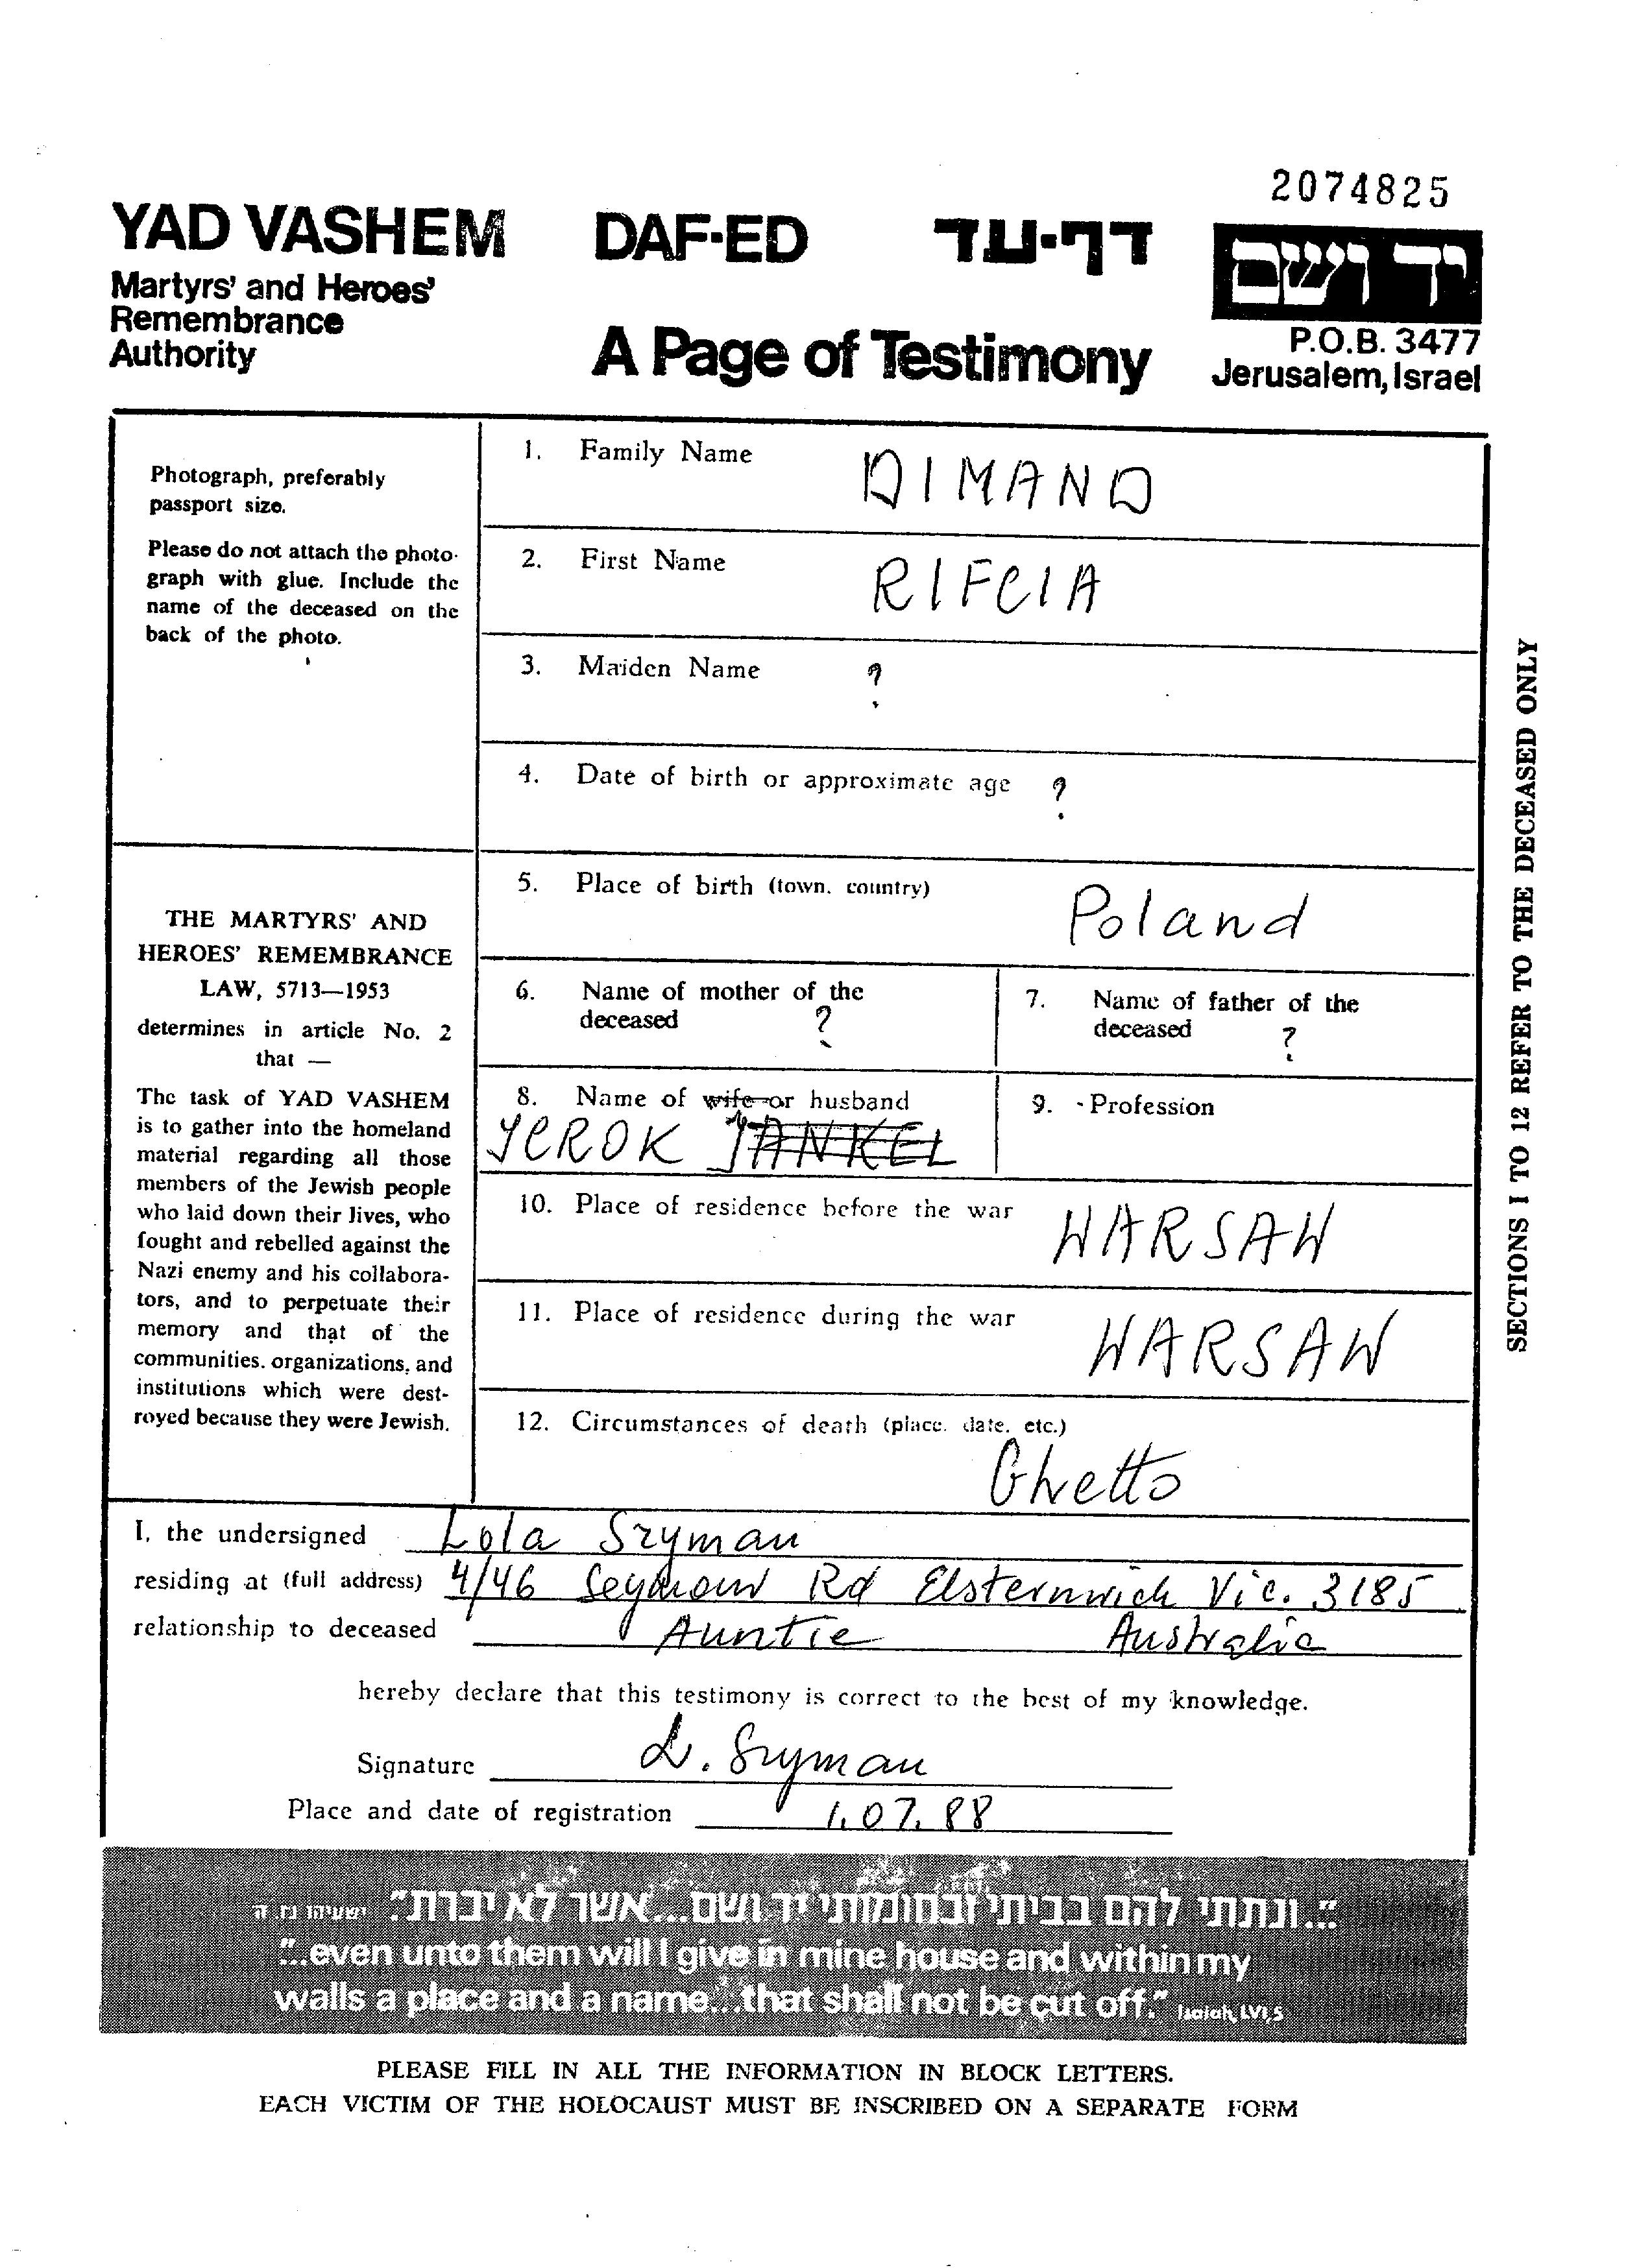 2074825
YAD VASHEM DAF-ED דף-עד יד ושם
Martyrs' and Heroes'
Remembrance
Authority
A Page of Testimony
P.O.B. 3477
Jerusalem, Israel
Photograph, preferably
passport size.
Please do not attach the photo-
graph with glue. Include the
name of the deceased on the
back of the photo.
THE MARTYRS' AND
HEROES' REMEMBRANCE
LAW, 5713—1953
determines in article No. 2
that —
The task of YAD VASHEM
is to gather into the homeland
material regarding all those
members of the Jewish people
who laid down their lives, who
fought and rebelled against the
Nazi enemy and his collabora-
tors, and to perpetuate their
memory and that of the
communities, organizations, and
institutions which were dest-
royed because they were Jewish.
1. Family Name DIMAND
2. First Name RIFCIA
3. Maiden Name ?
4. Date of birth or approximate age ?
5. Place of birth (town, country) Poland
6. Name of mother of the
deceased ?
7. Name of father of the
deceased ?
8. Name of wife or husband
YCROK JANKEL
9. Profession
10. Place of residence before the war WARSAW
11. Place of residence during the war WARSAW
12. Circumstances of death (place, date, etc.)
Ghetto
SECTIONS 1 TO 12 REFER TO THE DECEASED ONLY
I, the undersigned Lola Szyman
residing at (full address) 4/46 Seymour Rd Elsternwich Vic. 3185
relationship to deceased Auntie Australia
hereby declare that this testimony is correct to the best of my knowledge.
Signature L. Szyman
Place and date of registration 1.07.88
"...ונתתי להם בביתי ובחומותי יד ושם...אשר לא יכרת." ישעיהו נו, ה
"...even unto them will I give in mine house and within my
walls a place and a name...that shall not be cut off." Isaiah, LVI,5
PLEASE FILL IN ALL THE INFORMATION IN BLOCK LETTERS.
EACH VICTIM OF THE HOLOCAUST MUST BE INSCRIBED ON A SEPARATE FORM